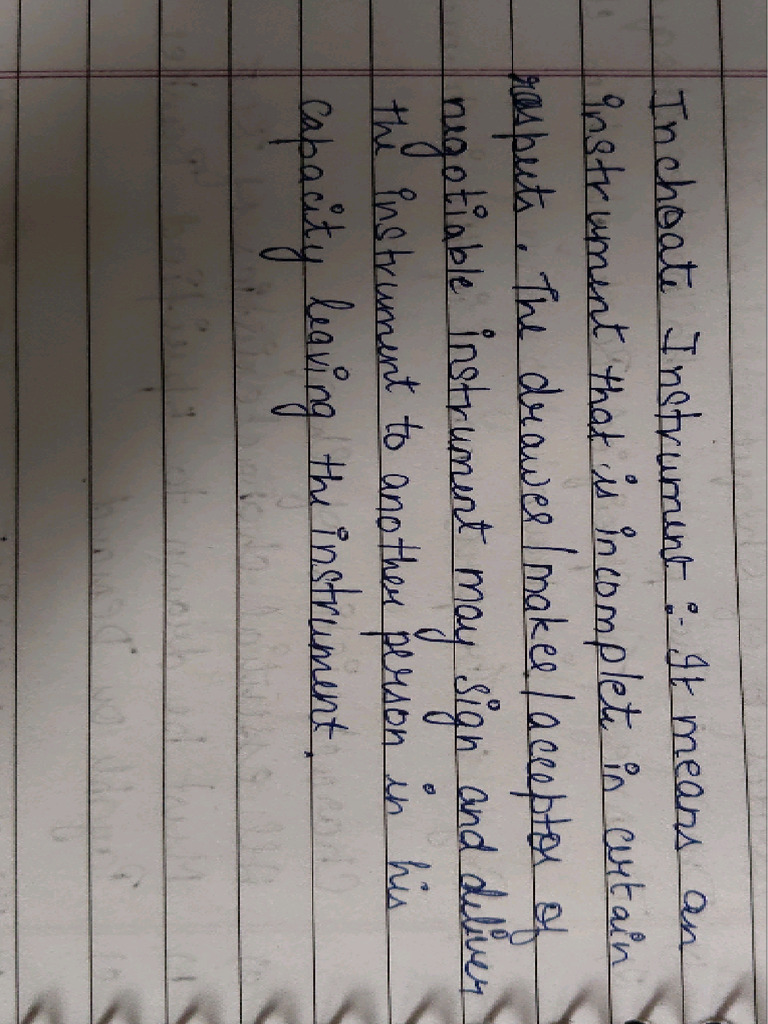 Inchoate Instrument :- It means an
instrument that is incomplete in certain
respects. The drawer/maker/acceptor of
negotiable instrument may sign and deliver
the instrument to another person in his
capacity leaving the instrument.